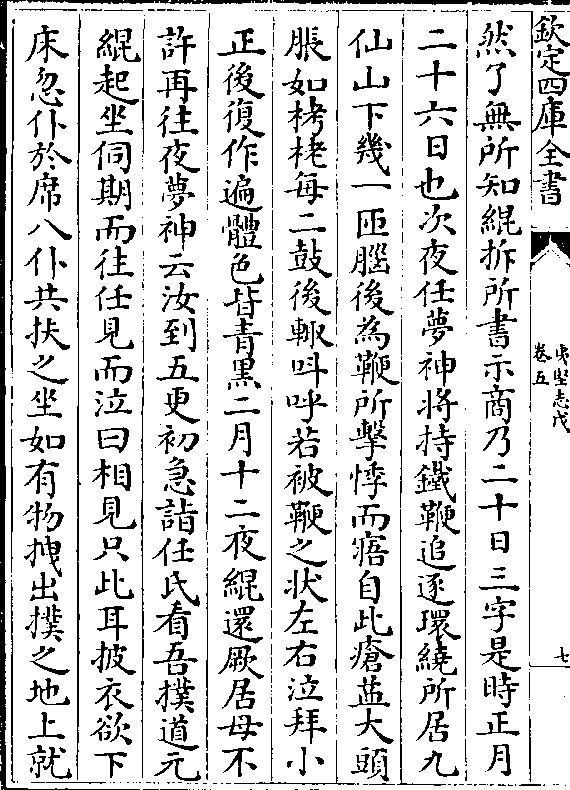 欽定四庫全書
夷堅志戊
卷五
七
然了無所知緄拆所書示商乃二十日三字是時正月
二十六日也次夜任夢神將持鐵鞭追逐環繞所居九
仙山下幾一匝腦後為鞭所擊悸而寤自此瘡益大頭
脹如栲栳每二鼓後輙呌呼若被鞭之状左右泣拜小
正後復作遍體色皆青黑二月十二夜緄還厥居母不
許再往夜夢神云汝到五更初急詣任氏看吾撲道元
緄起坐伺期而往任見而泣曰相見只此耳披衣欲下
床忽仆於席八仆共扶之坐如有物拽出撲之地上就